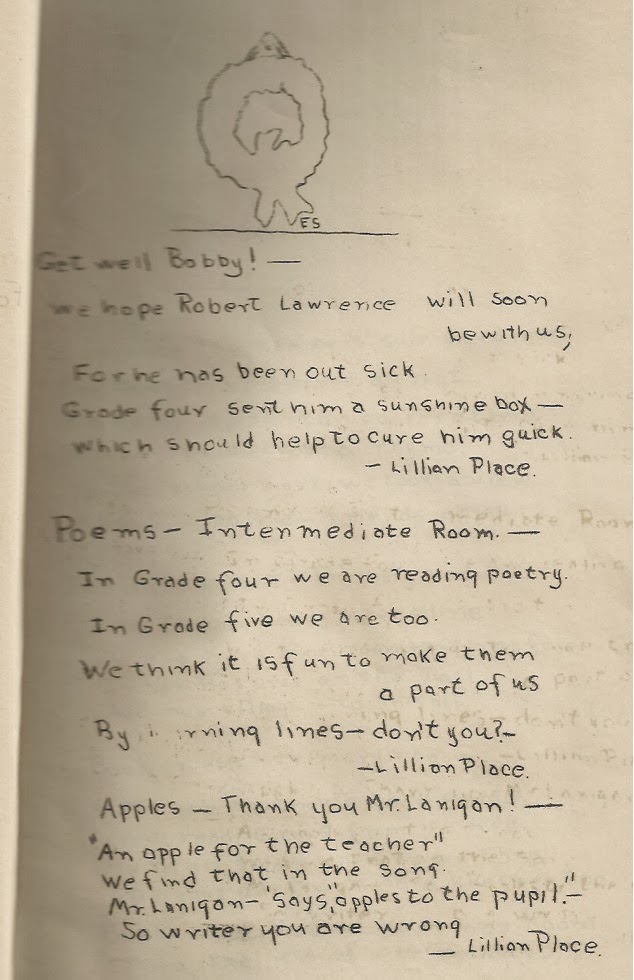 ES
Get well Bobby! —
We hope Robert Lawrence will soon
be with us,
For he has been out sick.
Grade four sent him a sunshine box —
which should help to cure him quick.
— Lillian Place.
Poems — Intermediate Room. —
In Grade four we are reading poetry.
In Grade five we are too.
We think it is fun to make them
a part of us
By lines — don't you? —
— Lillian Place.
Apples — Thank you Mr. Lanigan! —
"An apple for the teacher"
we find that in the song.
Mr. Lanigan — says, "apples to the pupil." —
So writer you are wrong
— Lillian Place.